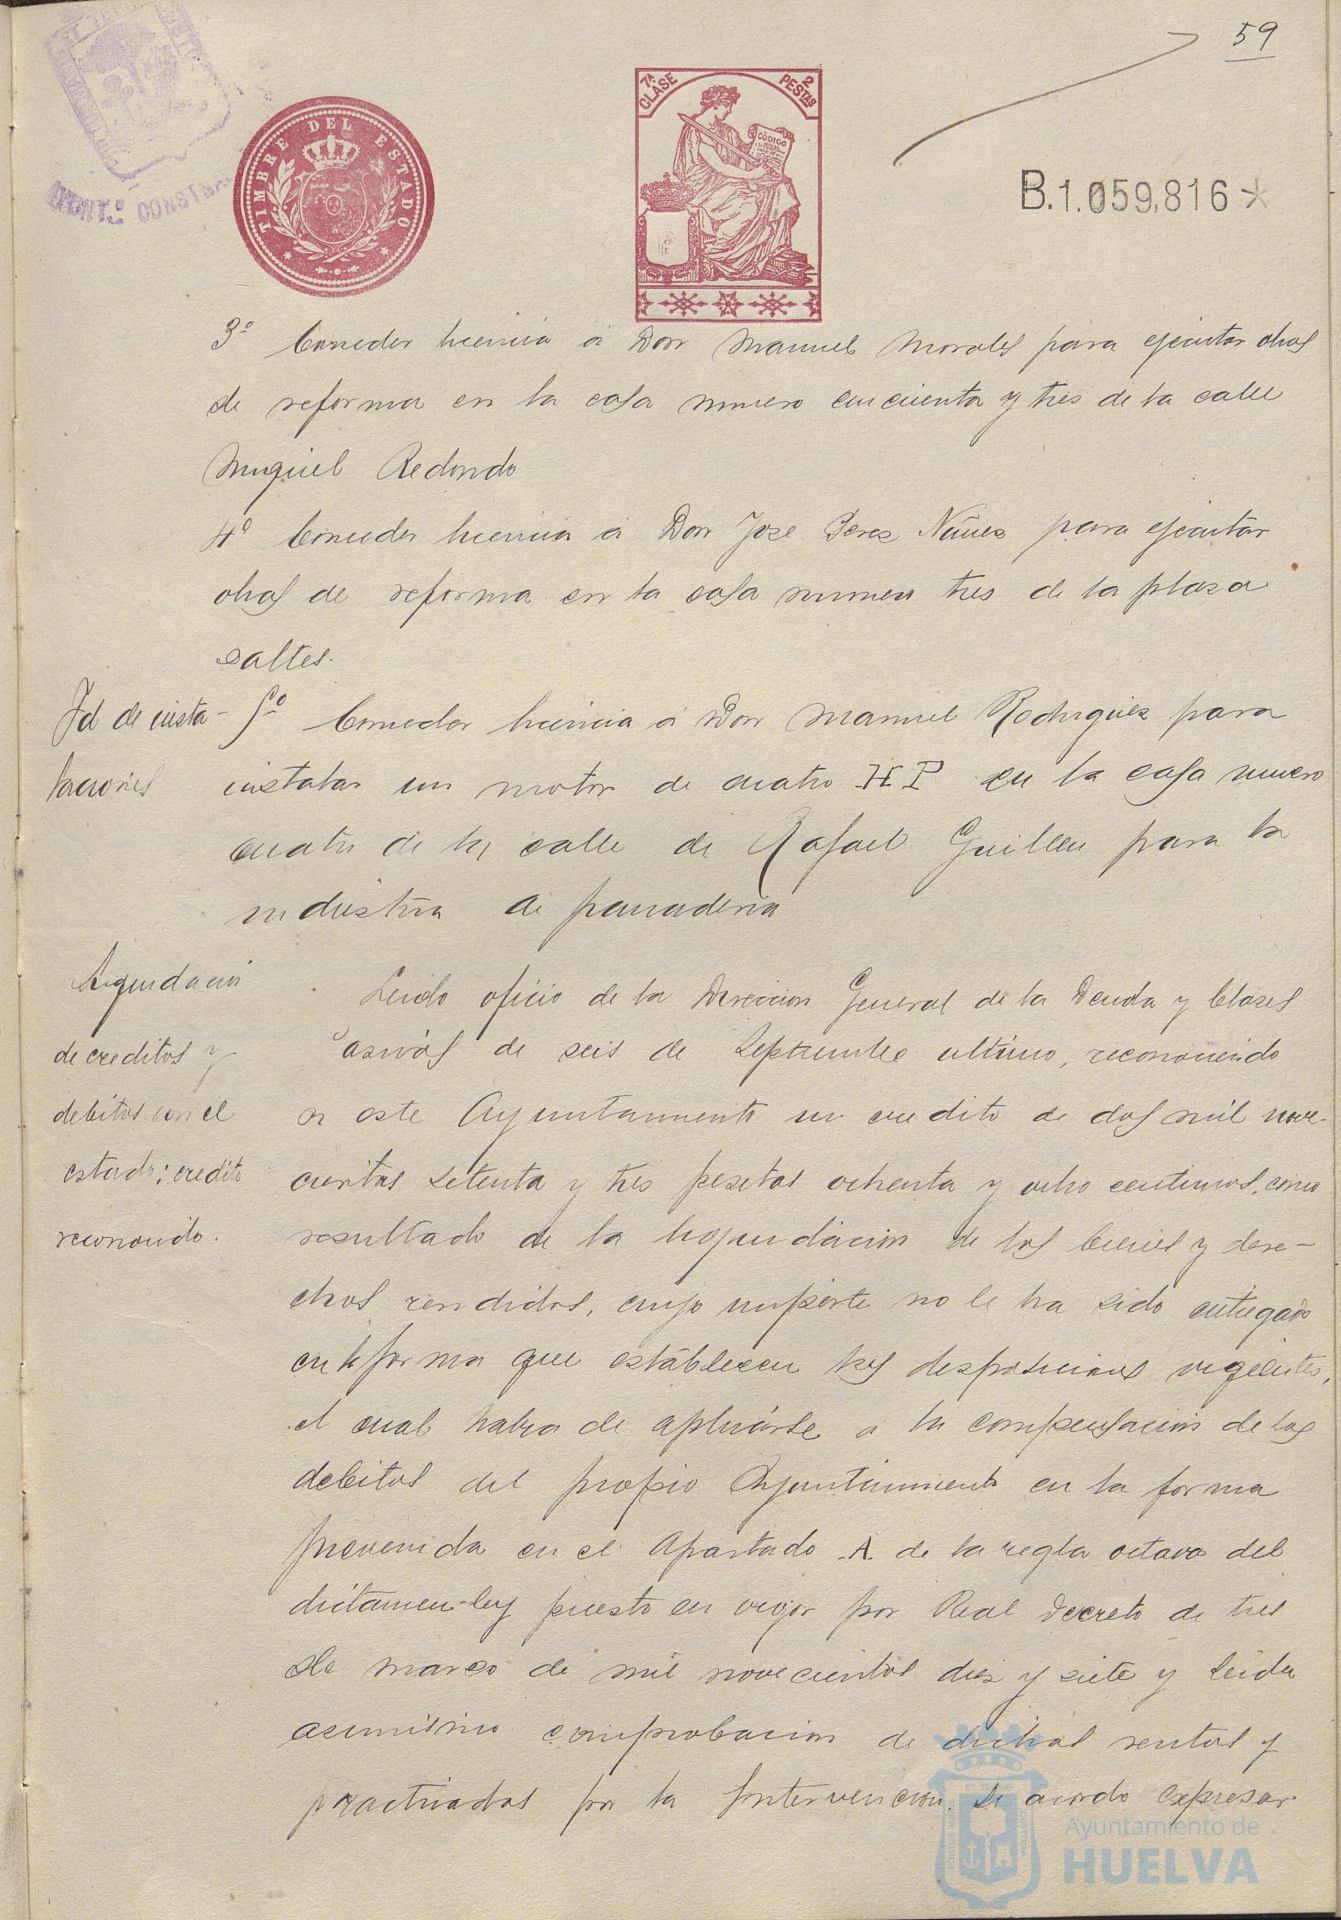 59
7ª CLASE
2 PESTAS
CÓDIGO
TIMBRE DEL ESTADO
AYUNTº CONSTI
B.1.059,816*
3º Conceder licencia á Don Manuel Morales para ejecutar obras
de reforma en la casa numero cincuenta y tres de la calle
Miguel Redondo
4º Conceder licencia á Don Jose Perez Núñez para ejecutar
obras de reforma en la casa numero tres de la plaza
Saltes.
Id de insta-
laciones
5º Conceder licencia á Don Manuel Rodriguez para
instalar un motor de cuatro HP en la casa numero
cuatro de la calle de Rafael Guillen para la
industria de panaderia
Liquidacion
de creditos y
debitos con el
estado: credito
reconocido.
Leido oficio de la Direccion General de la Deuda y Clases
Pasivas de seis de Septiembre ultimo, reconociendo
a este Ayuntamiento un credito de dos mil nove-
cientas setenta y tres pesetas ochenta y ocho centimos, como
resultado de la liquidacion de los bienes y dere-
chos rendidos, cuyo importe no le ha sido entregado
en la forma que establecen las disposiciones vigentes,
el cual habra de aplicarse a la compensacion de los
debitos del propio Ayuntamiento en la forma
prevenida en el Apartado A. de la regla octava del
dictamen-ley puesto en vigor por Real Decreto de tres
de marzo de mil novecientos diez y siete y leida
asimismo comprobacion de dichas rentas y
practicadas por la Intervencion. Se acordo expresar
Ayuntamiento de
HUELVA